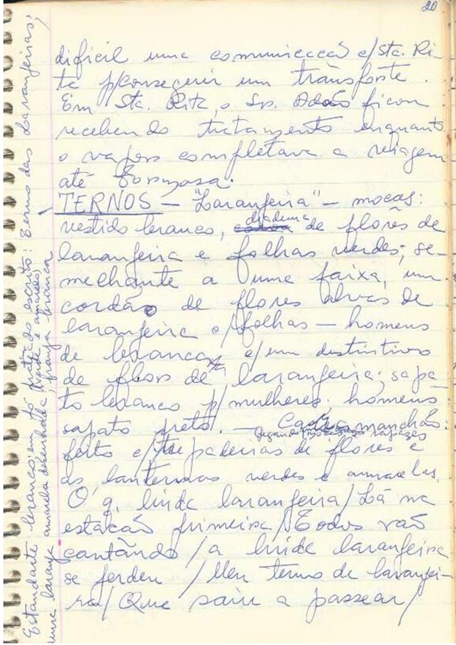 20
dificil uma comunicação c/Sta. Ri-
ta p/conseguir um transporte.
Em Sta. Rita, o Sr. Adão ficou
recebendo tratamento enquanto
o vapor completava a viagem
até Formosa.
TERNOS – "Laranjeira" – moças:
vestido branco, diadema de flôres de
laranjeira e folhas verdes; se-
melhante a uma faixa, um
cordão de flores alvas de
laranjeira c/folhas – homens
de branco c/um distintivo
de flor de laranjeira; sapa-
to branco p/mulheres; homens
sapato preto. –
feito c/ de flores e
as lanternas verdes e amarelas.
O' q. linda laranjeira/Lá na
estacão primeira/Todos vão
cantando/a linda laranjeira
se perdeu/Meu terno de laranjei-
ra/Que saiu a passear/
Estandarte branco; em prateado escrito: Terno das Laranjeiras;
uma laranja amarela desenhada franja branca